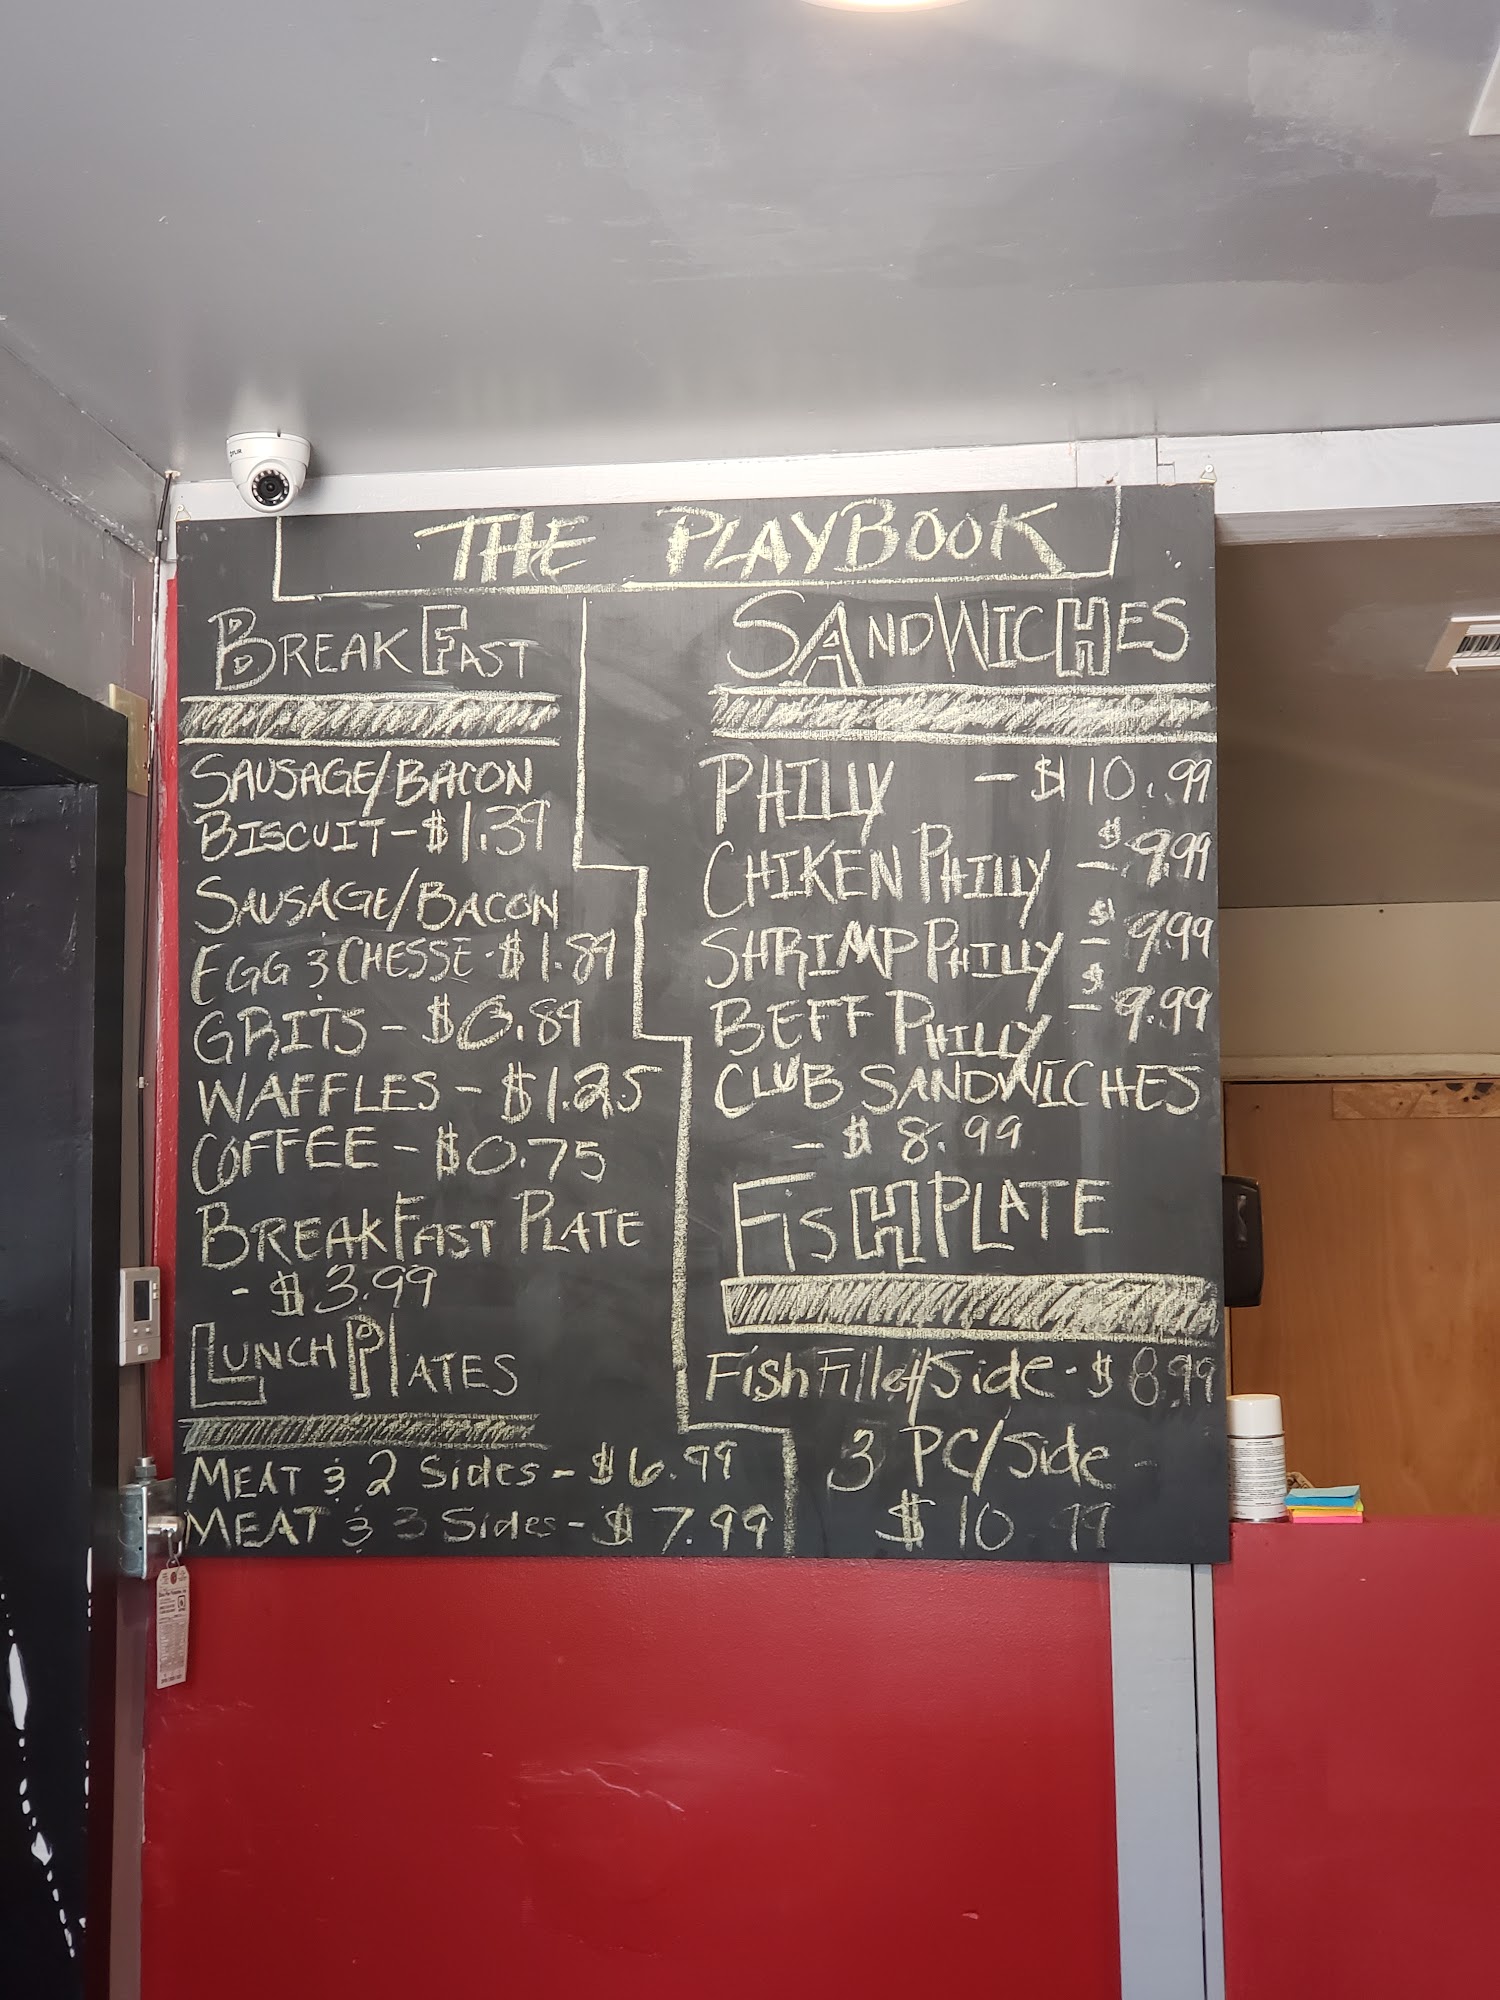 THE PLAYBOOK
BREAKFAST
SAUSAGE/BACON
BISCUIT - $1.39
SAUSAGE/BACON
EGG & CHESSE - $1.89
GRITS - $0.89
WAFFLES - $1.25
COFFEE - $0.75
BREAKFAST PLATE
- $3.99
LUNCH PLATES
MEAT & 2 Sides - $6.99
MEAT & 3 Sides - $7.99
SANDWICHES
PHILLY - $10.99
CHIKEN PHILLY - $9.99
SHRIMP PHILLY - $9.99
BEFF PHILLY - $9.99
CLUB SANDWICHES
- $8.99
FISH PLATE
Fish Fillet/Side - $8.99
3 PC/Side -
$10.99